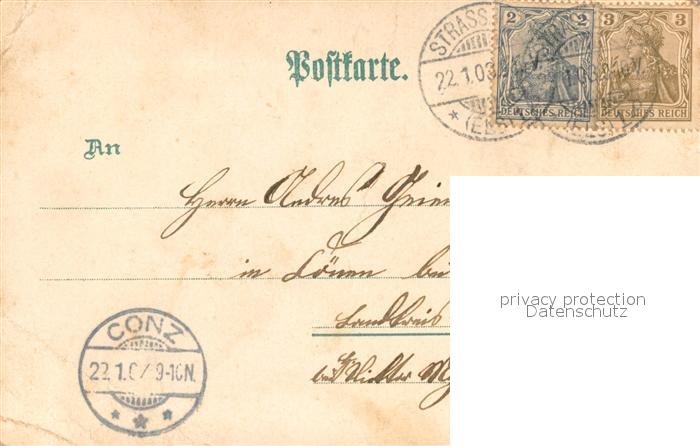 Postkarte.
STRASS
22.1.03
(ELS)
2 2
DEUTSCHES REICH
3 3
DEUTSCHES REICH
An
Herrn Andres
in Könen bei
Landkreis
CONZ
22.1.0 9-10N.
privacy protection
Datenschutz